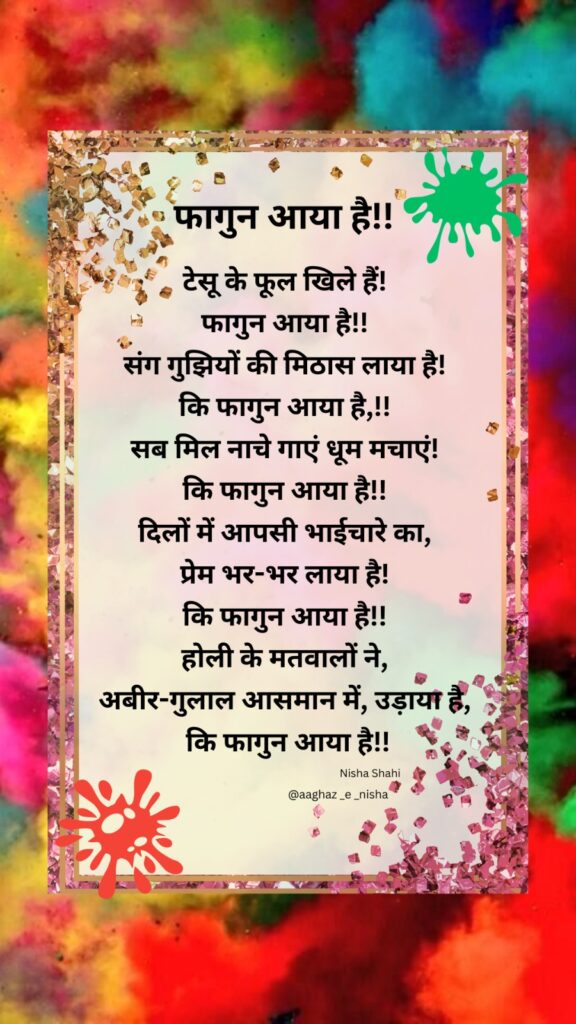 फागुन आया है!!
टेसू के फूल खिले हैं!
फागुन आया है!!
संग गुझियों की मिठास लाया है!
कि फागुन आया है,!!
सब मिल नाचे गाएं धूम मचाएं!
कि फागुन आया है!!
दिलों में आपसी भाईचारे का,
प्रेम भर-भर लाया है!
कि फागुन आया है!!
होली के मतवालों ने,
अबीर-गुलाल आसमान में, उड़ाया है,
कि फागुन आया है!!
Nisha Shahi
@aaghaz _e _nisha